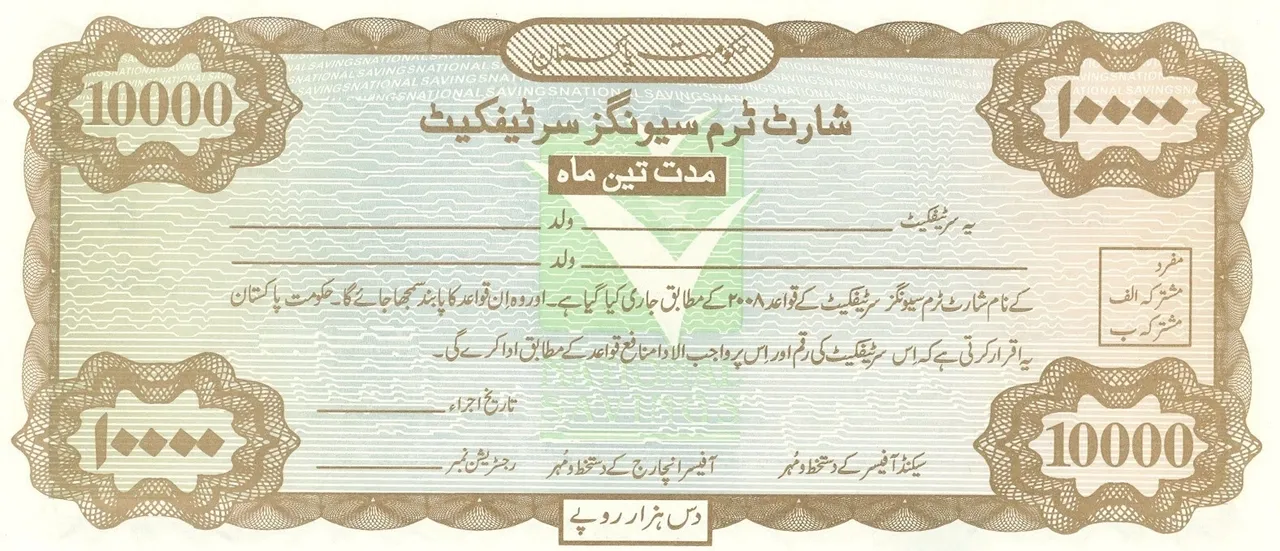 حکومت پاکستان
NATIONAL SAVINGS
10000
۱۰۰۰۰
شارٹ ٹرم سیونگز سرٹیفکیٹ
مدت تین ماہ
یہ سرٹیفکیٹ ولد
ولد
مفرد
مشترکہ الف
مشترکہ ب
کے نام شارٹ ٹرم سیونگز سرٹیفکیٹ کے قواعد ۲۰۰۸ کے مطابق جاری کیا گیا ہے۔ اور وہ اِن قواعد کا پابند سمجھا جائے گا۔ حکومت پاکستان
یہ اقرار کرتی ہے کہ اِس سرٹیفکیٹ کی رقم اور اِس پر واجب الادا منافع قواعد کے مطابق ادا کرے گی۔
NATIONAL
SAVINGS
تاریخ اجراء
سیکنڈ آفیسر کے دستخط و مُہر آفیسر انچارج کے دستخط و مُہر رجسٹریشن نمبر
10000
۱۰۰۰۰
دس ہزار روپے